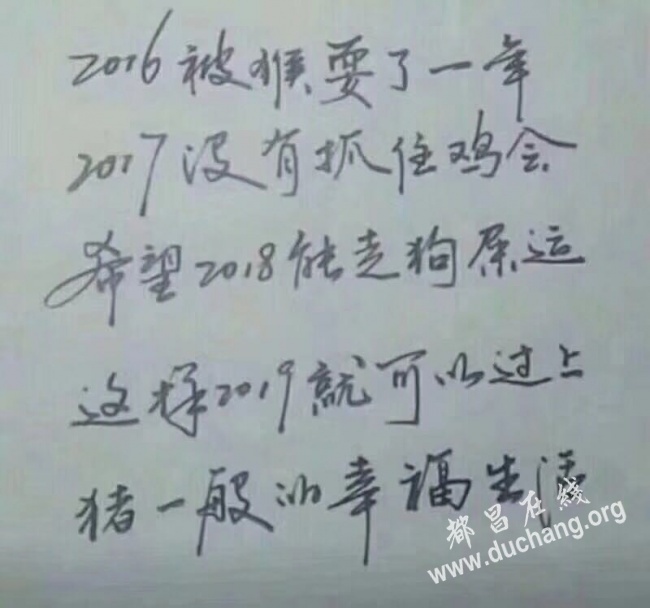 2016被猴耍了一年
2017没有抓住鸡会
希望2018能走狗屎运
这样2019就可以过上
猪一般的幸福生活
都昌在线
www.duchang.org